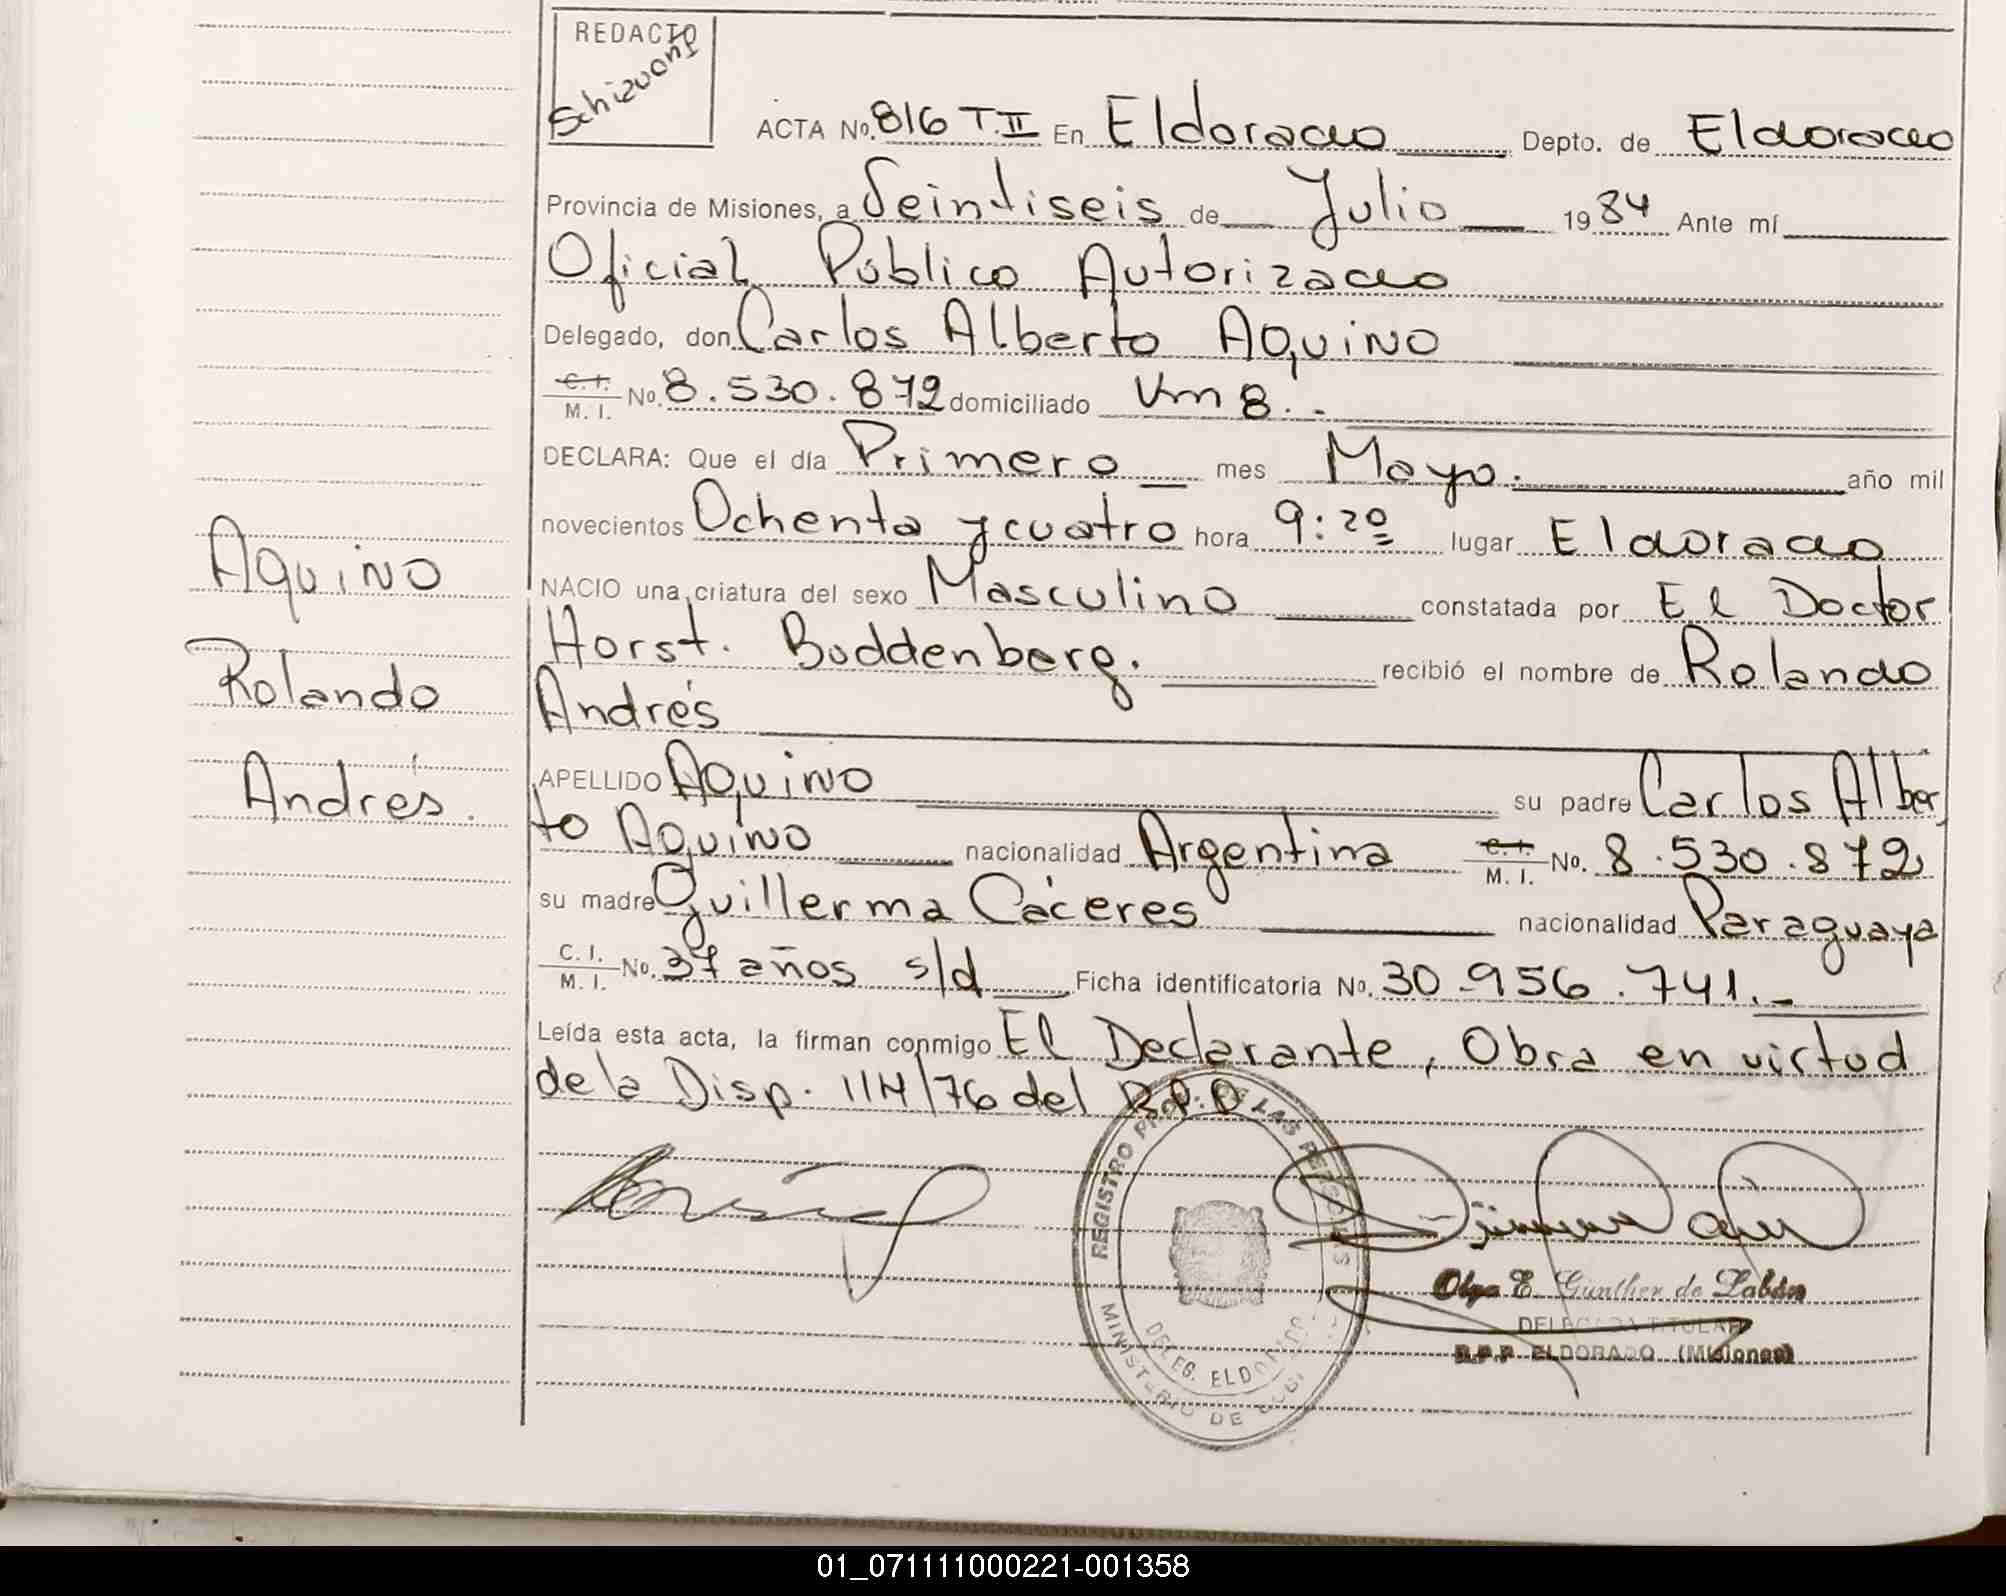 REDACTO
Schizvoni
ACTA No. 816 T.II En Eldorado Depto. de Eldorado
Provincia de Misiones, a Veintiseis de Julio 1984 Ante mí
Oficial Público Autorizado
Delegado, don Carlos Alberto Aquino
C. I. M. I. No. 8.530.872 domiciliado Km 8.-
DECLARA: Que el día Primero mes Mayo. año mil
novecientos Ochenta y cuatro hora 9:20 lugar Eldorado
NACIO una criatura del sexo Masculino constatada por El Doctor
Horst. Buddenberg. recibió el nombre de Rolando
Andrés
APELLIDO Aquino su padre Carlos Alber
to Aquino nacionalidad Argentina C. I. M. I. No. 8.530.872
su madre Guillerma Cáceres nacionalidad Paraguaya
C. I. M. I. No. 37 años s/d Ficha identificatoria No. 30.956.741.-
Leída esta acta, la firman conmigo El Declarante, Obra en virtud
de la Disp. 114/76 del R.P.P
Aquino
Rolando
Andrés.
REGISTRO DE LAS
DELEG. ELDORADO
MINISTERIO DE
Olga E. Günther de Labán
DELEGADA TITULAR
R.P.P ELDORADO (Misiones)
01_071111000221-001358